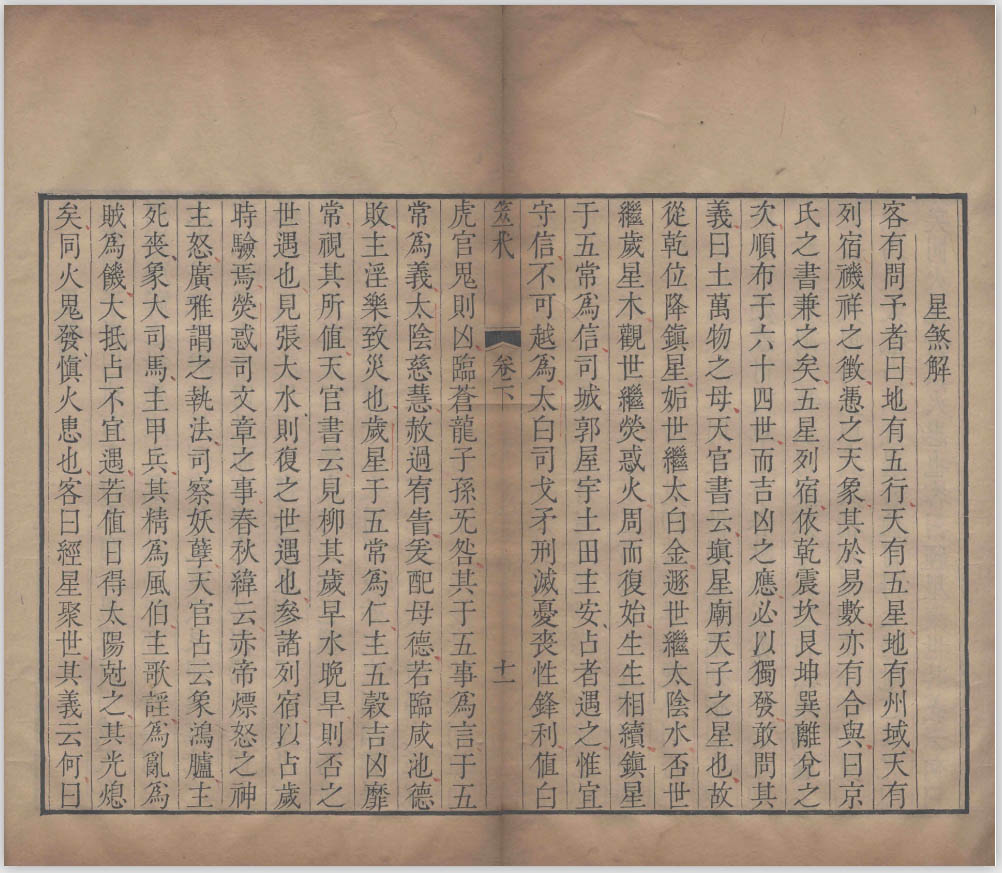 星煞解
客有問予者曰地有五行天有五星地有州域天有
列宿禨祥之徵憑之天象其於易數亦有合與曰京
氏之書兼之矣五星列宿依乾震坎艮坤巽離兌之
次順布于六十四世而吉凶之應必以獨發敢問其
義曰土萬物之母天官書云塡星廟天子之星也故
從乾位降鎭星姤世繼太白金遯世繼太陰水否世
繼歲星木觀世繼熒惑火周而復始生生相續鎭星
于五常爲信司城郭屋宇土田主安占者遇之惟宜
守信不可越爲太白司戈矛刑滅憂喪性鋒利值白
筮朩
卷下
十一
虎官鬼則凶臨蒼龍子孫无咎其于五事爲言于五
常爲義太陰慈慧赦過宥眚爰配母德若臨咸池德
敗主淫樂致災也歲星于五常爲仁主五穀吉凶靡
常視其所值天官書云見柳其歲旱水晚旱則否之
世遇也見張大水則復之世遇也參諸列宿以占歲
時驗焉熒惑司文章之事春秋緯云赤帝熛怒之神
主怒廣雅謂之執法司察妖孽天官占云象鴻臚主
死喪象大司馬主甲兵其精爲風伯主歌謡爲亂爲
賊爲饑大抵占不宜遇若值日得太陽尅之其光熄
矣同火鬼發愼火患也客曰經星聚世其義云何曰